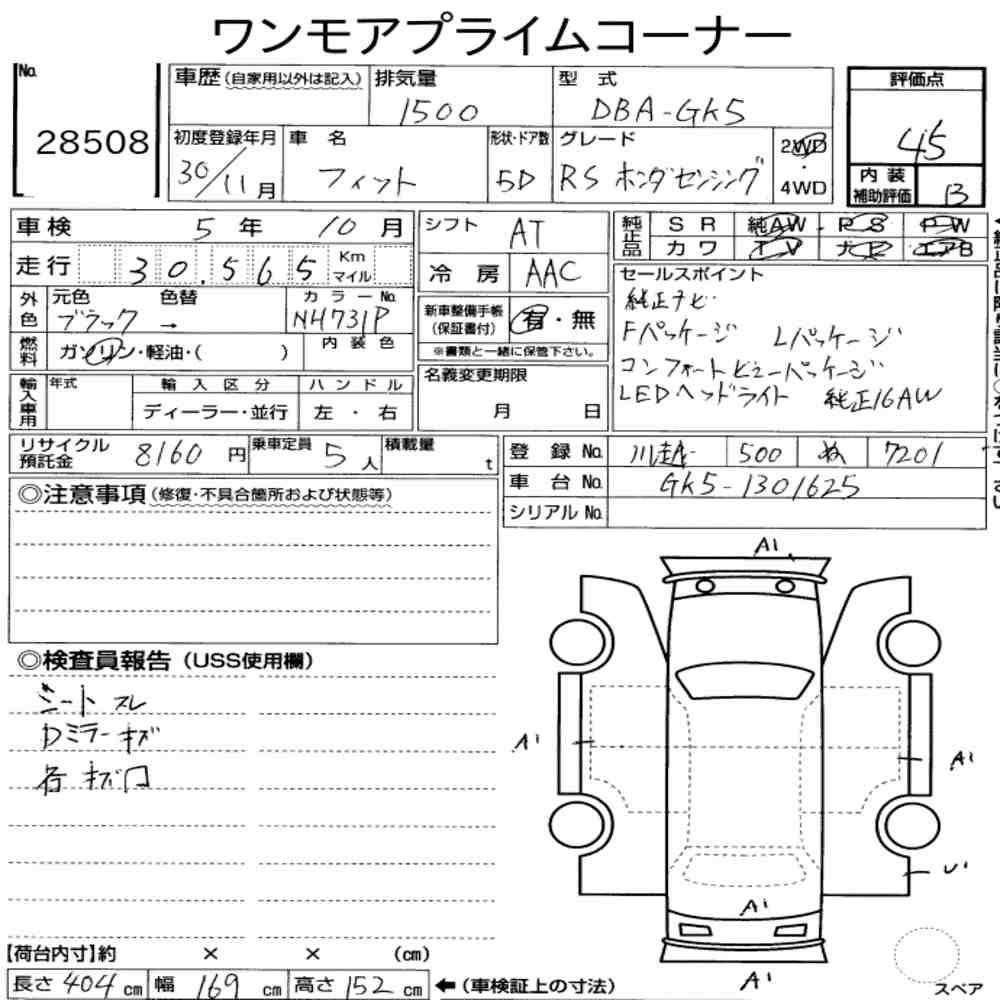 ワンモアプライムコーナー
No. 28508
車歴(自家用以外は記入)
排気量 1500
型式 DBA-GK5
評価点 45
初度登録年月 30/11月
車名 フィット
形状・ドア数 5D
グレード RS ホンダセンシング
2WD・4WD
内装補助評価 B
車検 5年 10月
シフト AT
純正品 SR 純AW PS PW
カワ TV ナビ エアB
走行 30,565 Km マイル
冷房 AAC
セールスポイント
純正ナビ
Fパッケージ Lパッケージ
コンフォートビューパッケージ
LEDヘッドライト 純正16AW
外色 元色 ブラック → 色替
カラーNo. NH731P
新車整備手帳(保証書付) 有・無
※書類と一緒に保管下さい。
燃料 ガソリン・軽油・( )
内装色
名義変更期限 月 日
輸入車用 年式 輸入区分 ハンドル
ディーラー・並行 左・右
リサイクル預託金 8160円
乗車定員 5人
積載量 t
登録No. 川越 500 ぬ 7201
車台No. GK5-1301625
シリアルNo.
◎注意事項(修復・不具合箇所および状態等)
◎検査員報告(USS使用欄)
シート スレ
Dミラー キズ
各 キズ凹
A1
A1
A1
U1
A1
A1
【荷台内寸】約 × × (cm)
長さ 404 cm 幅 169 cm 高さ 152 cm ←(車検証上の寸法)
スペア